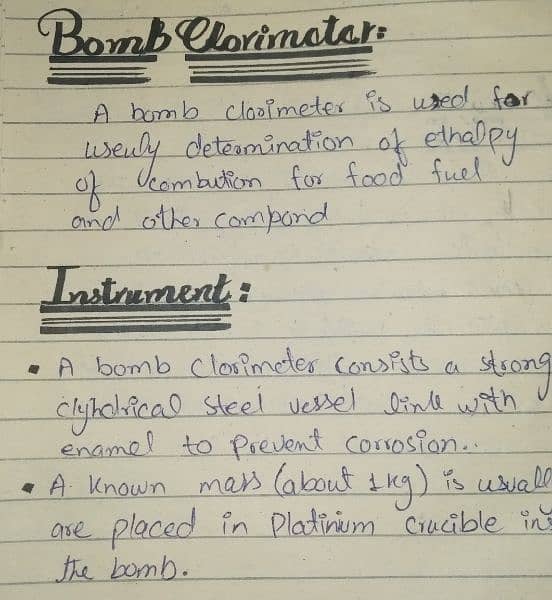 Bomb Clorimetar:
A bomb clooimeter is used for
useuly deteomination of ethalpy
of combution for food fuel
and other compond
Instrument:
• A bomb Clorimeter consists a strong
clyhdrical steel vessel link with
enamel to prevent corrosion..
• A known mass (about 1kg) is usuall
are placed in Platinium crucible in
the bomb.